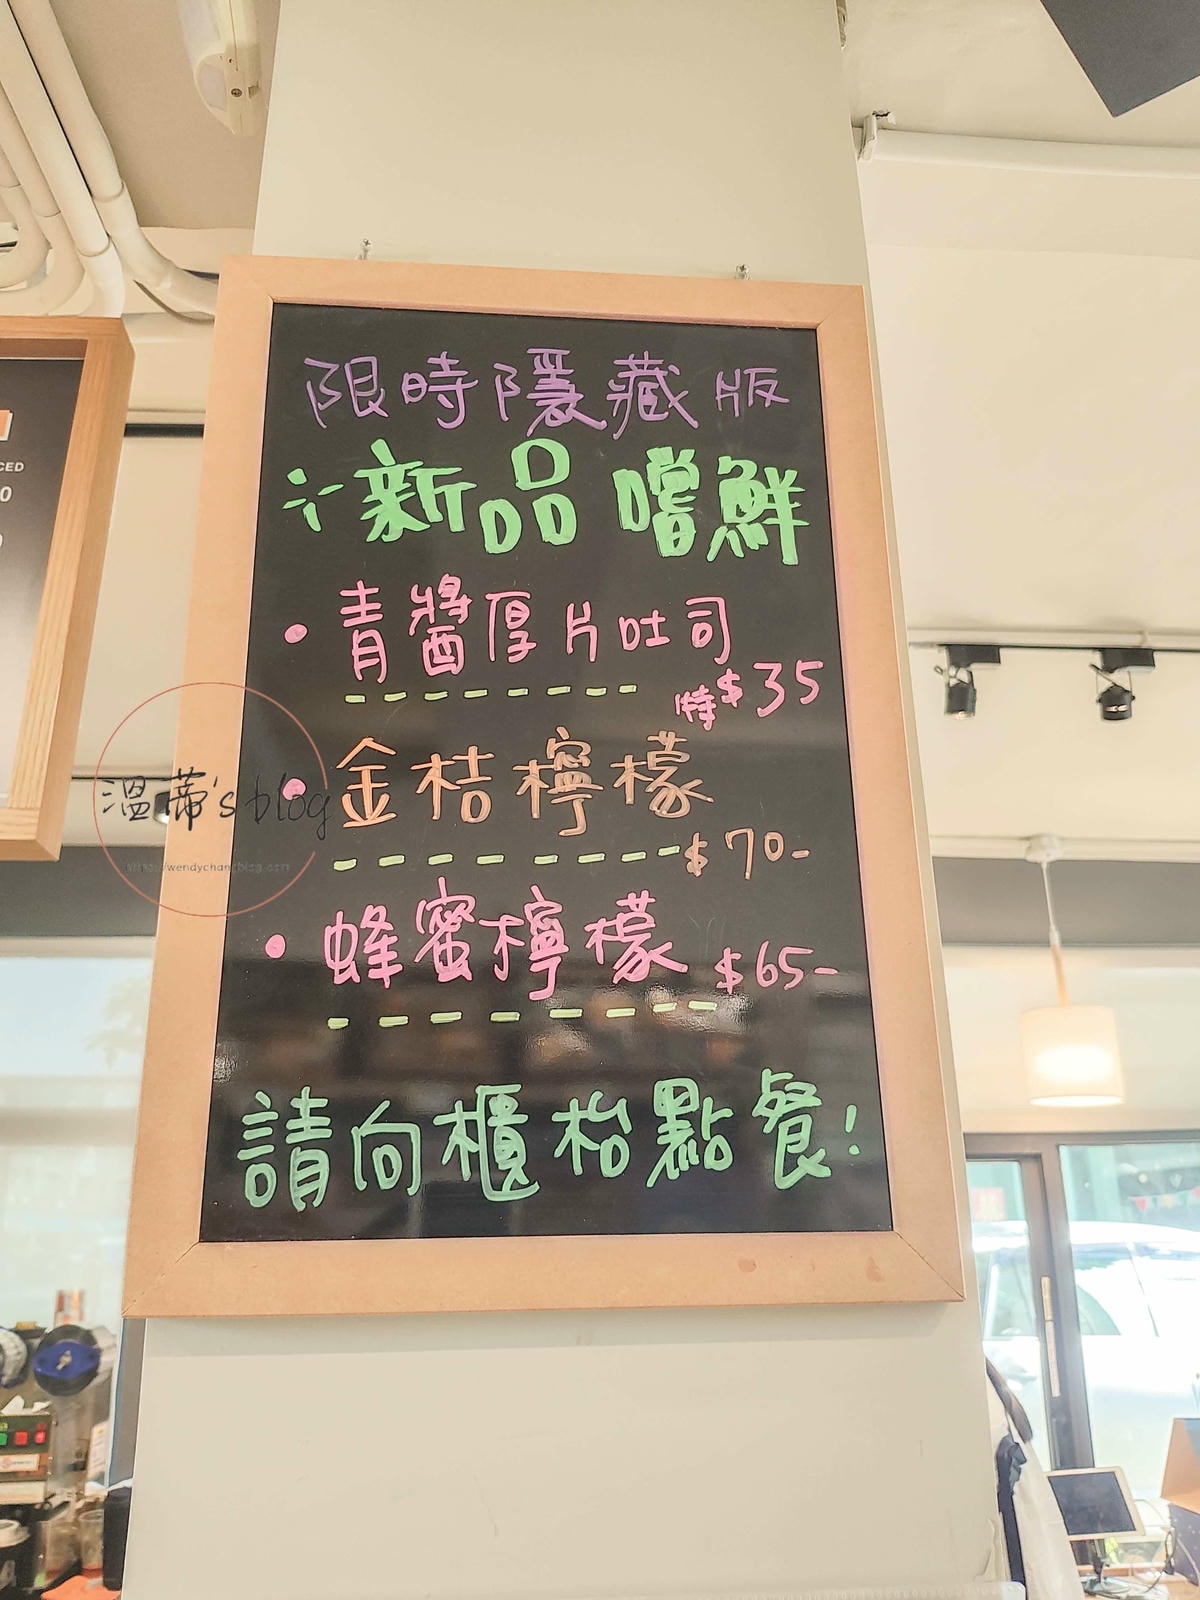 限時隱藏版
新品嚐鮮
• 青醬厚片吐司
特$35
• 金桔檸檬
$70-
• 蜂蜜檸檬 $65-
請向櫃枱點餐!
溫蒂's blog
https://wendychangblog.com
CED
0